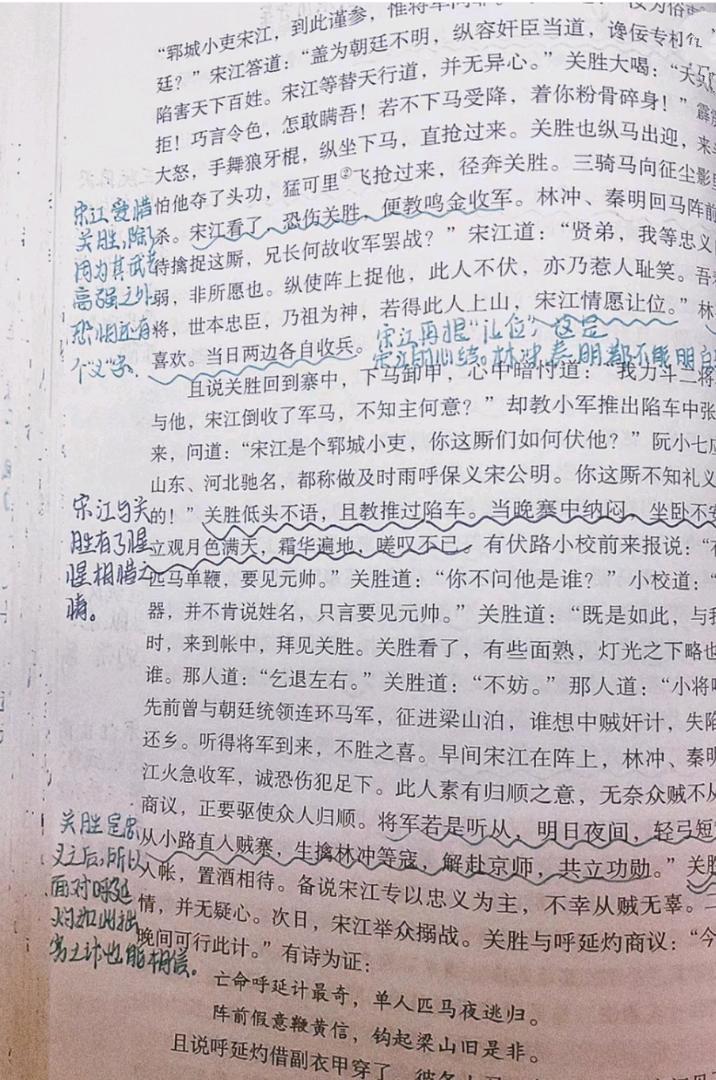 “郓城小吏宋江，到此谨参，惟将军问罪。
廷？”宋江答道：“盖为朝廷不明，纵容奸臣当道，谗佞专权，
陷害天下百姓。宋江等替天行道，并无异心。”关胜大喝：“天
拒！巧言令色，怎敢瞒吾！若不下马受降，着你粉骨碎身！”霹
大怒，手舞狼牙棍，纵坐下马，直抢过来。关胜也纵马出迎，来
怕他夺了头功，猛可里②飞抢过来，径奔关胜。三骑马向征尘影
杀。宋江看了，恐伤关胜，便教鸣金收军。林冲、秦明回马阵前
待擒捉这厮，兄长何故收军罢战？”宋江道：“贤弟，我等忠义
弱，非所愿也。纵使阵上捉他，此人不伏，亦乃惹人耻笑。吾
将，世本忠臣，乃祖为神，若得此人上山，宋江情愿让位。”林
喜欢。当日两边各自收兵。
宋江爱惜
关胜，除
因为其武艺
高强之外
恐怕还有
个“义”字。
宋江再提“让位”，这是
宋江的心结。林冲秦明都不能明白
且说关胜回到寨中，下马卸甲，心中暗忖道：“我力斗二将
与他，宋江倒收了军马，不知主何意？”却教小军推出陷车中张
来，问道：“宋江是个郓城小吏，你这厮们如何伏他？”阮小七应
山东、河北驰名，都称做及时雨呼保义宋公明。你这厮不知礼义
的！”关胜低头不语，且教推过陷车。当晚寨中纳闷，坐卧不安
立观月色满天，霜华遍地，嗟叹不已。有伏路小校前来报说：“有
匹马单鞭，要见元帅。”关胜道：“你不问他是谁？”小校道：“
器，并不肯说姓名，只言要见元帅。”关胜道：“既是如此，与我
时，来到帐中，拜见关胜。关胜看了，有些面熟，灯光之下略也
谁。那人道：“乞退左右。”关胜道：“不妨。”那人道：“小将呼
先前曾与朝廷统领连环马军，征进梁山泊，谁想中贼奸计，失陷
还乡。听得将军到来，不胜之喜。早间宋江在阵上，林冲、秦明
江火急收军，诚恐伤犯足下。此人素有归顺之意，无奈众贼不从
商议，正要驱使众人归顺。将军若是听从，明日夜间，轻弓短
从小路直入贼寨，生擒林冲等寇，解赴京师，共立功勋。”关胜
人帐，置酒相待。备说宋江专以忠义为主，不幸从贼无辜。二
情，并无疑心。次日，宋江举众搦战。关胜与呼延灼商议：“今
晚间可行此计。”有诗为证：
宋江与关
胜有了惺
惺相惜之
情。
关胜是忠
义之后，所以
面对呼延
灼如此拙
劣之计也能相信。
亡命呼延计最奇，单人匹马夜逃归。
阵前假意鞭黄信，钩起梁山旧是非。
且说呼延灼借副衣甲穿了，彼各上马